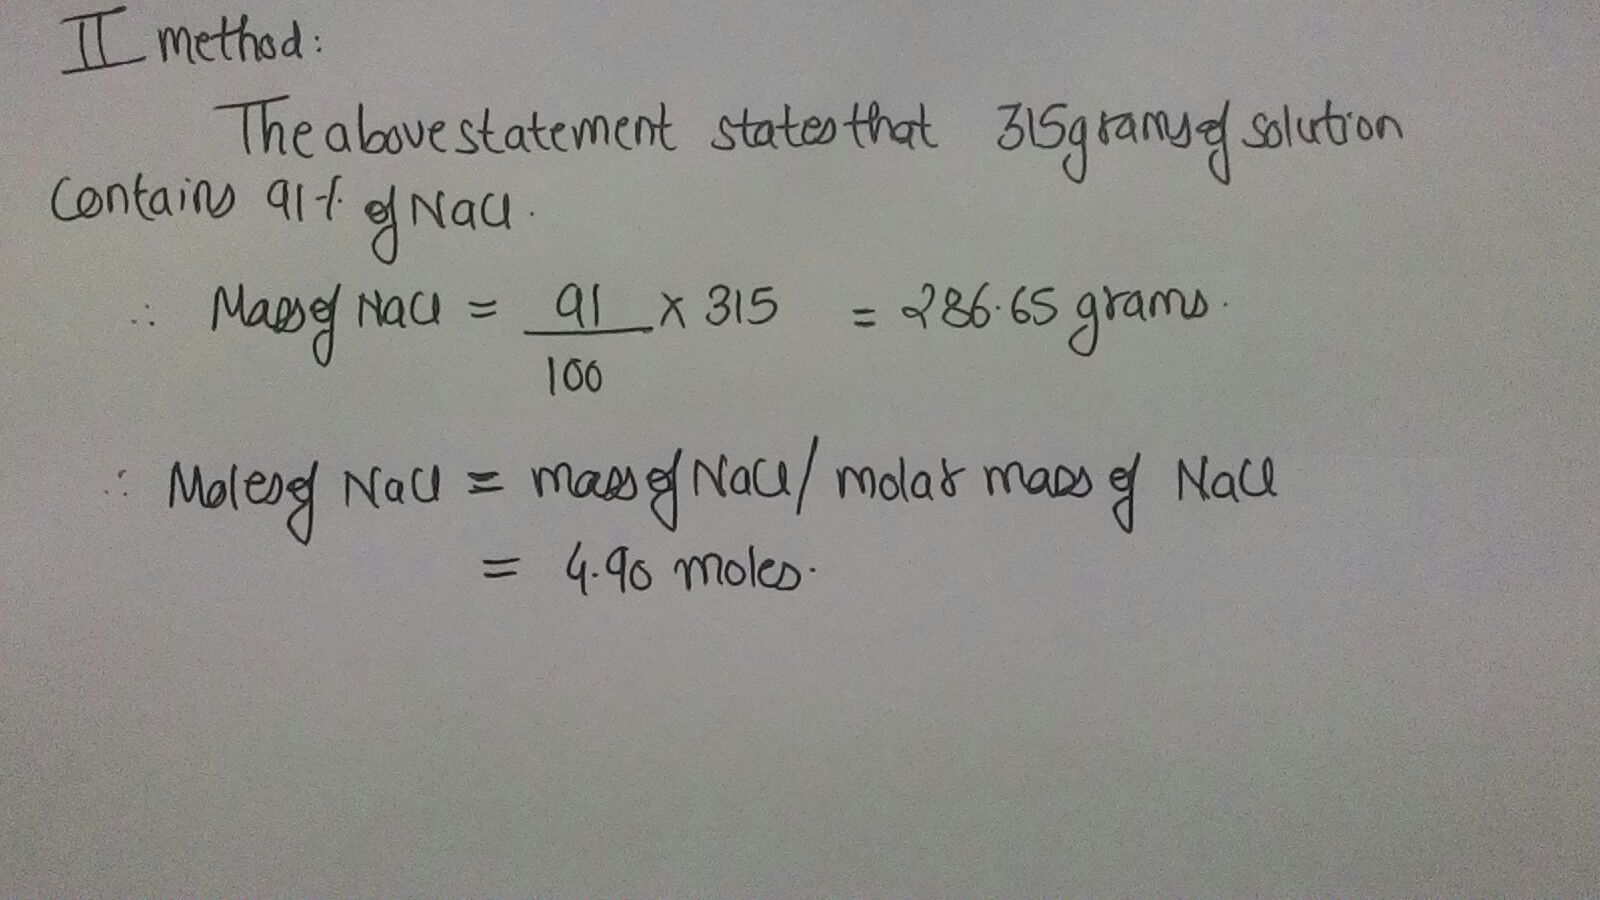 II method:
The above statement states that 315grams of solution
Contains 91% of NaCl.
∴ Mass of NaCl = 91/100 × 315 = 286.65 grams.
∴ Moles of NaCl = mass of NaCl/molar mass of NaCl
= 4.90 moles.